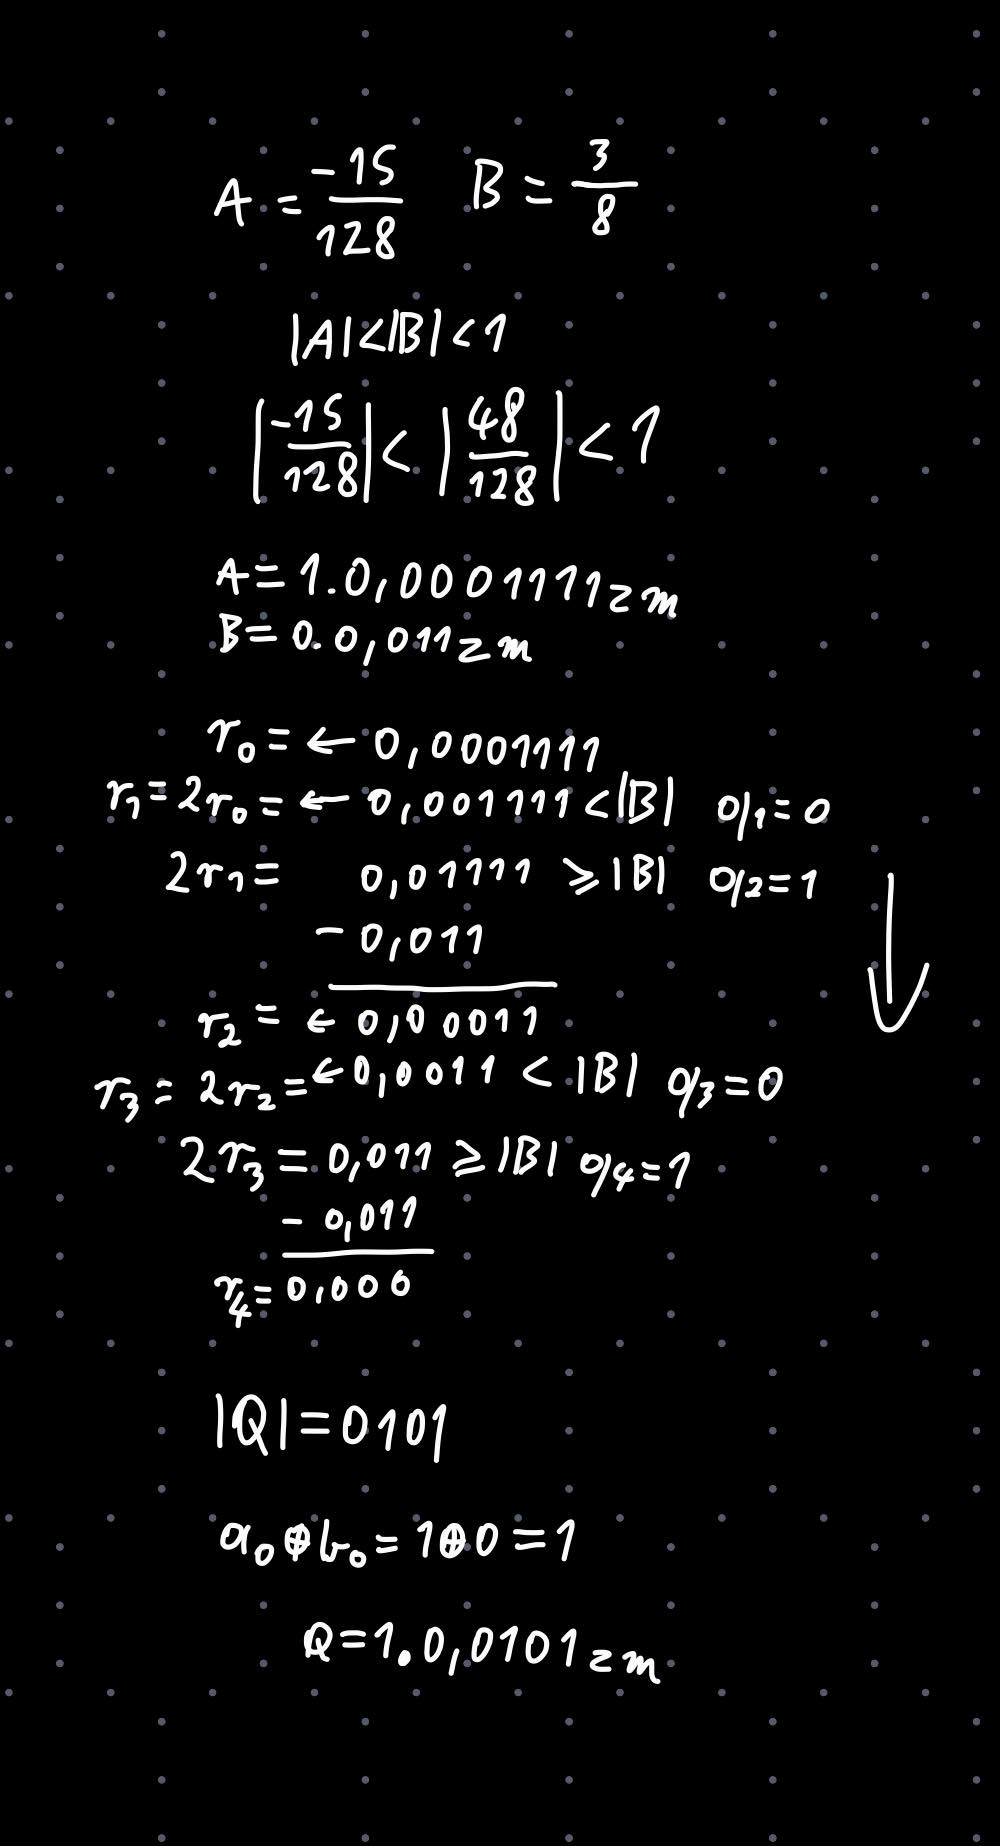 A = -15/128 B = 3/8
|A|<|B|<1
|-15/128| < |48/128| < 1
A = 1.0,0001111zm
B = 0.0,011zm
r0 = ← 0,0001111
r1 = 2r0 = ← 0,001111 < |B| q1 = 0
2r1 = 0,01111 ⩾ |B| q2 = 1
- 0,011
r2 = ← 0,00011
r3 = 2r2 = ← 0,0011 < |B| q3 = 0
2r3 = 0,011 ⩾ |B| q4 = 1
- 0,011
r4 = 0,000
|Q| = 0101
a0 ⊕ b0 = 1⊕0 = 1
Q = 1.0,0101zm